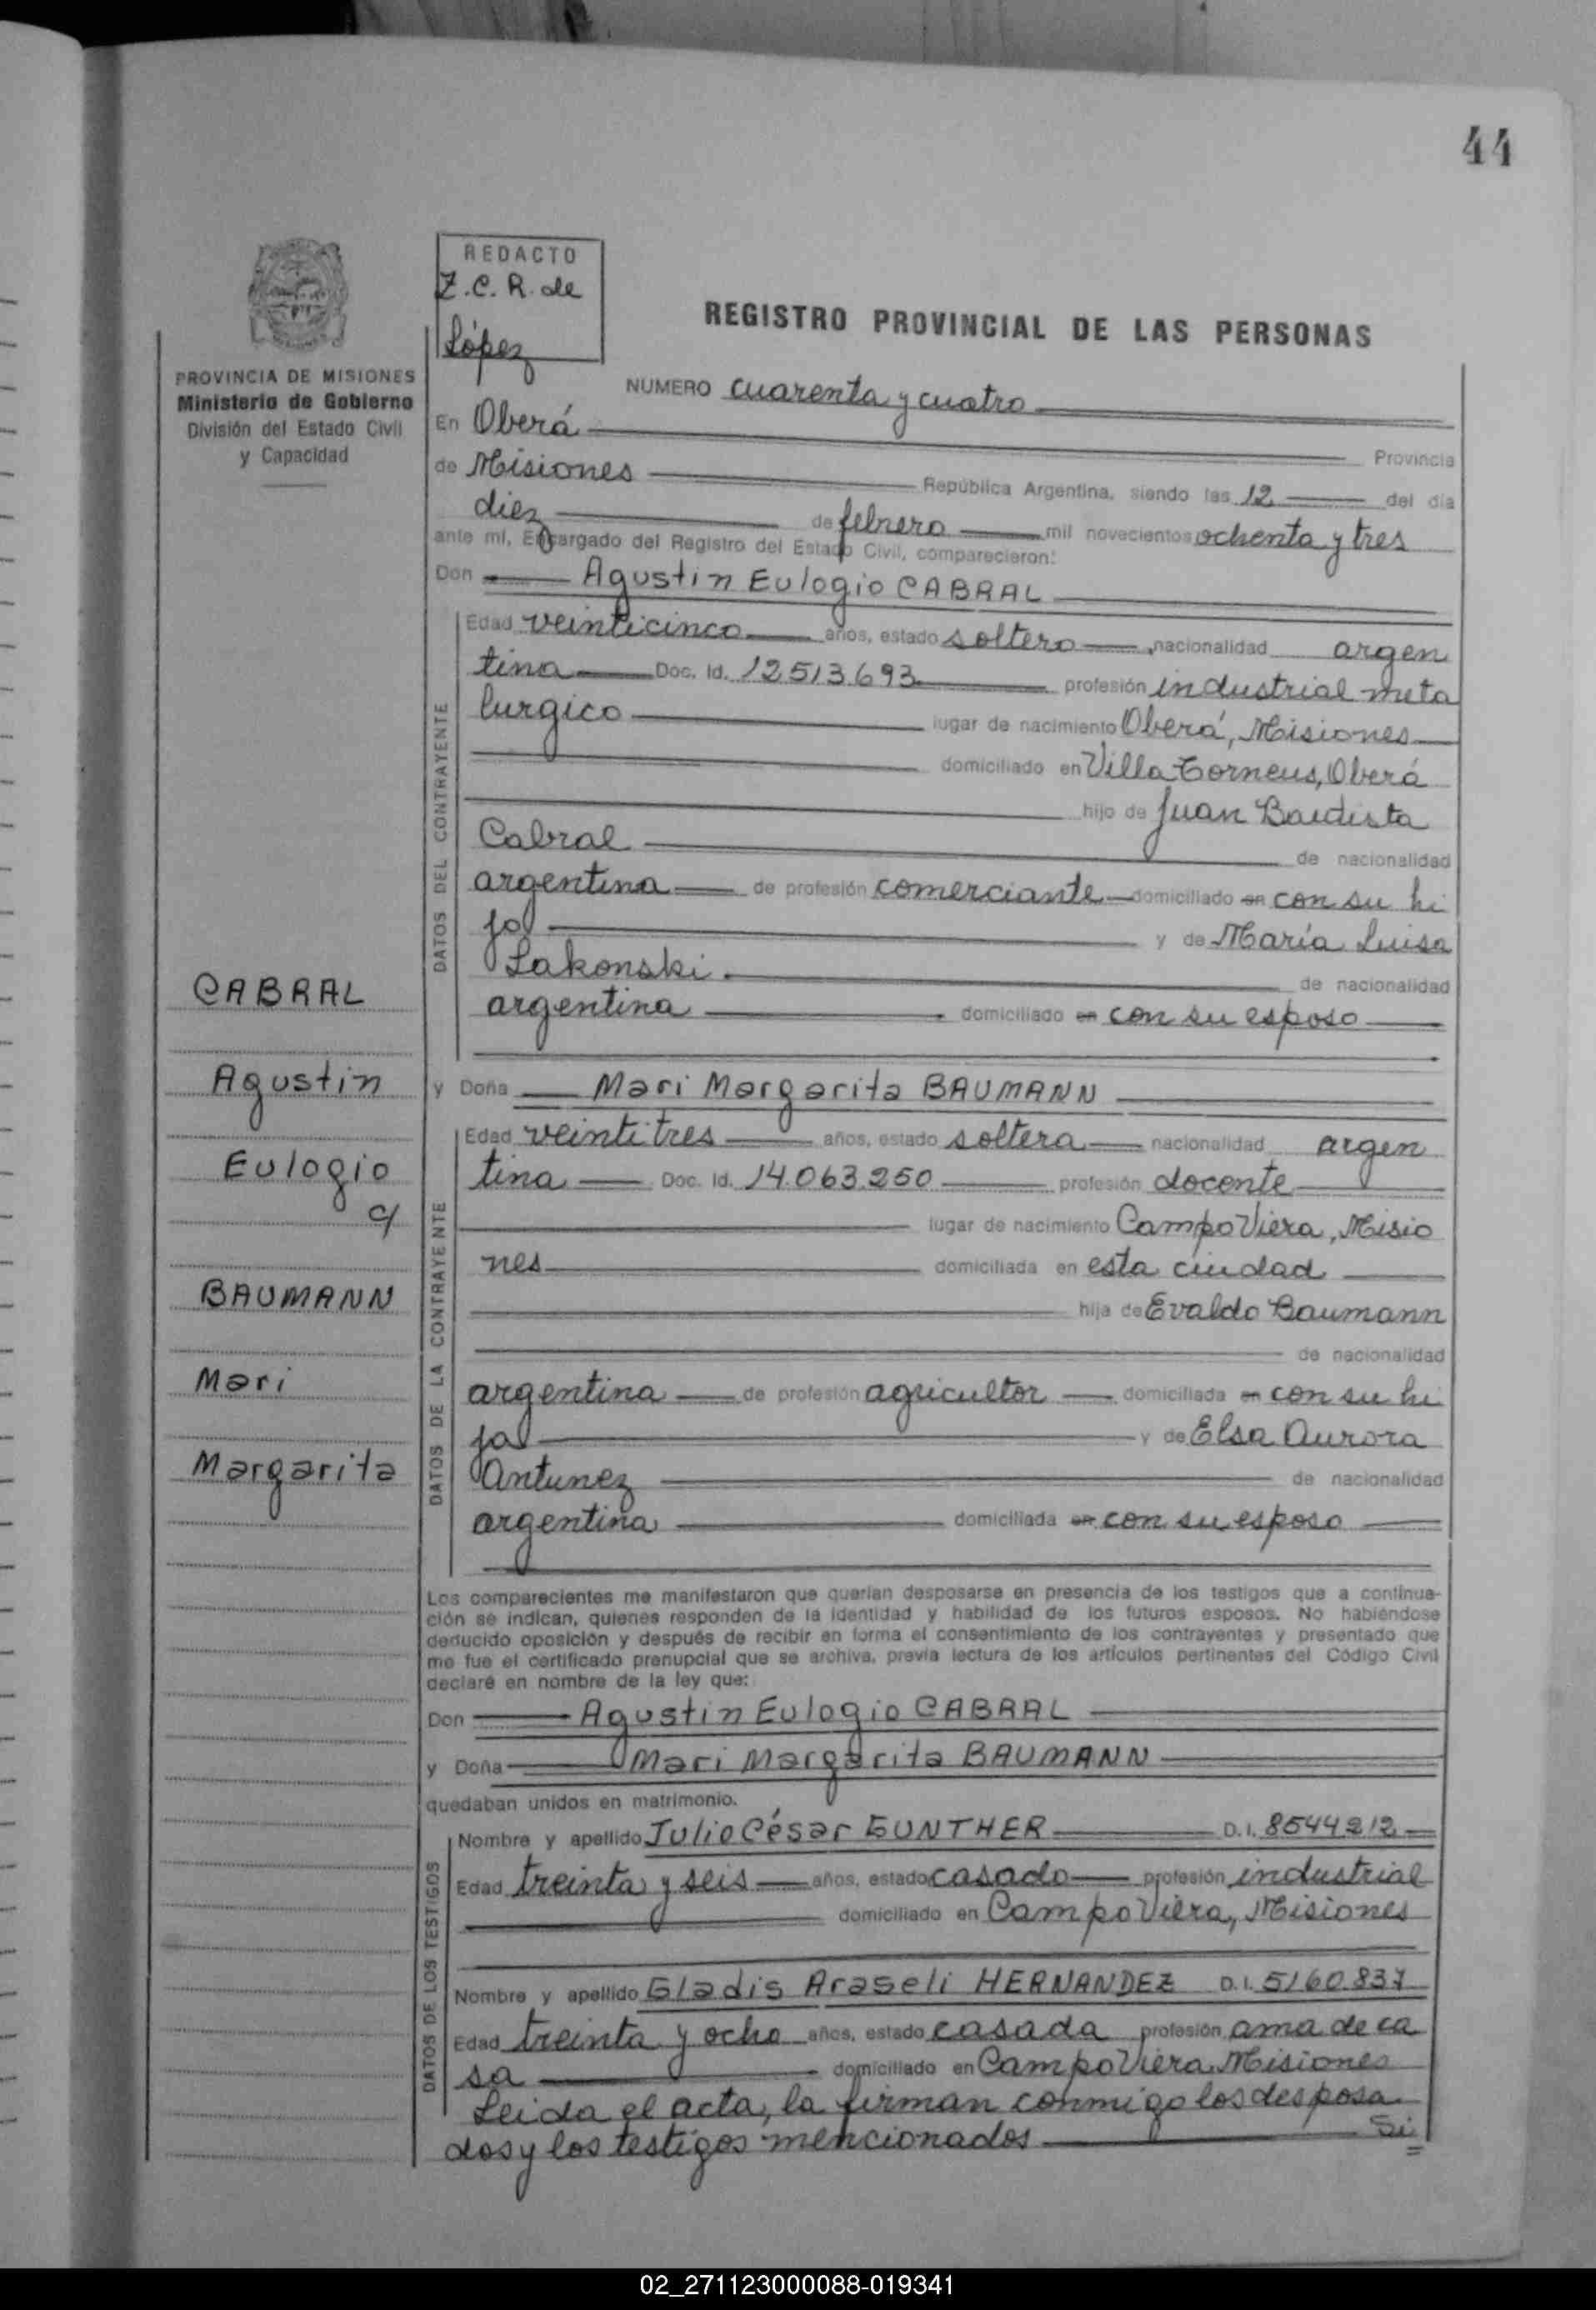 44
REDACTO
Z.C.R. de
López
REGISTRO PROVINCIAL DE LAS PERSONAS
PROVINCIA DE MISIONES
Ministerio de Gobierno
División del Estado Civil
y Capacidad
NUMERO cuarenta y cuatro
En Oberá
Provincia
de Misiones República Argentina, siendo las 12 del día
diez de febrero mil novecientos ochenta y tres
ante mí, Encargado del Registro del Estado Civil, comparecieron:
Don Agustin Eulogio CABRAL
DATOS DEL CONTRAYENTE
Edad veinticinco años, estado soltero, nacionalidad argen
tina Doc. Id. 12.513.693 profesión industrial meta
lurgico lugar de nacimiento Oberá, Misiones
domiciliado en Villa Torneus, Oberá
hijo de Juan Bautista
Cabral de nacionalidad
argentina de profesión comerciante domiciliado en con su hi
jo y de María Luisa
Lakonski de nacionalidad
argentina domiciliado en con su esposo
CABRAL
Agustin
Eulogio
c/
BAUMANN
Mari
Margarita
y Doña Mari Margarita BAUMANN
DATOS DE LA CONTRAYENTE
Edad veintitres años, estado soltera nacionalidad argen
tina Doc. Id. 14.063.250 profesión docente
lugar de nacimiento Campo Viera, Misio
nes domiciliada en esta ciudad
hija de Evaldo Baumann
de nacionalidad
argentina de profesión agricultor domiciliada en con su hi
ja y de Elsa Aurora
Antunez de nacionalidad
argentina domiciliada en con su esposo
Los comparecientes me manifestaron que querían desposarse en presencia de los testigos que a continua-
ción se indican, quienes responden de la identidad y habilidad de los futuros esposos. No habiéndose
deducido oposición y después de recibir en forma el consentimiento de los contrayentes y presentado que
me fue el certificado prenupcial que se archiva, previa lectura de los artículos pertinentes del Código Civil
declaré en nombre de la ley que:
Don Agustin Eulogio CABRAL
y Doña Mari Margarita BAUMANN
quedaban unidos en matrimonio.
DATOS DE LOS TESTIGOS
Nombre y apellido Julio César GUNTHER D.I. 8544212
Edad treinta y seis años, estado casado profesión industrial
domiciliado en Campo Viera, Misiones
Nombre y apellido Gladis Araseli HERNANDEZ D.I. 5160.837
Edad treinta y ocho años, estado casada profesión ama de ca
sa domiciliado en Campo Viera, Misiones
Leida el acta, la firman conmigo los desposa
dos y los testigos mencionados Si
02_271123000088-019341